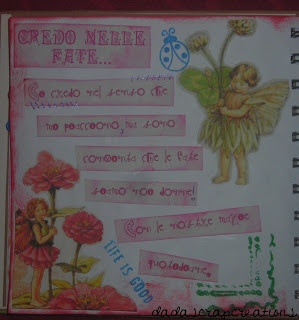 CREDO NELLE
FATE...
Ci credo nel senso che
ma sono
convinta che le fate
siamo noi donne!
Con le nostre magie
quotidiane.
LIFE IS GOOD
dada scrapcreations